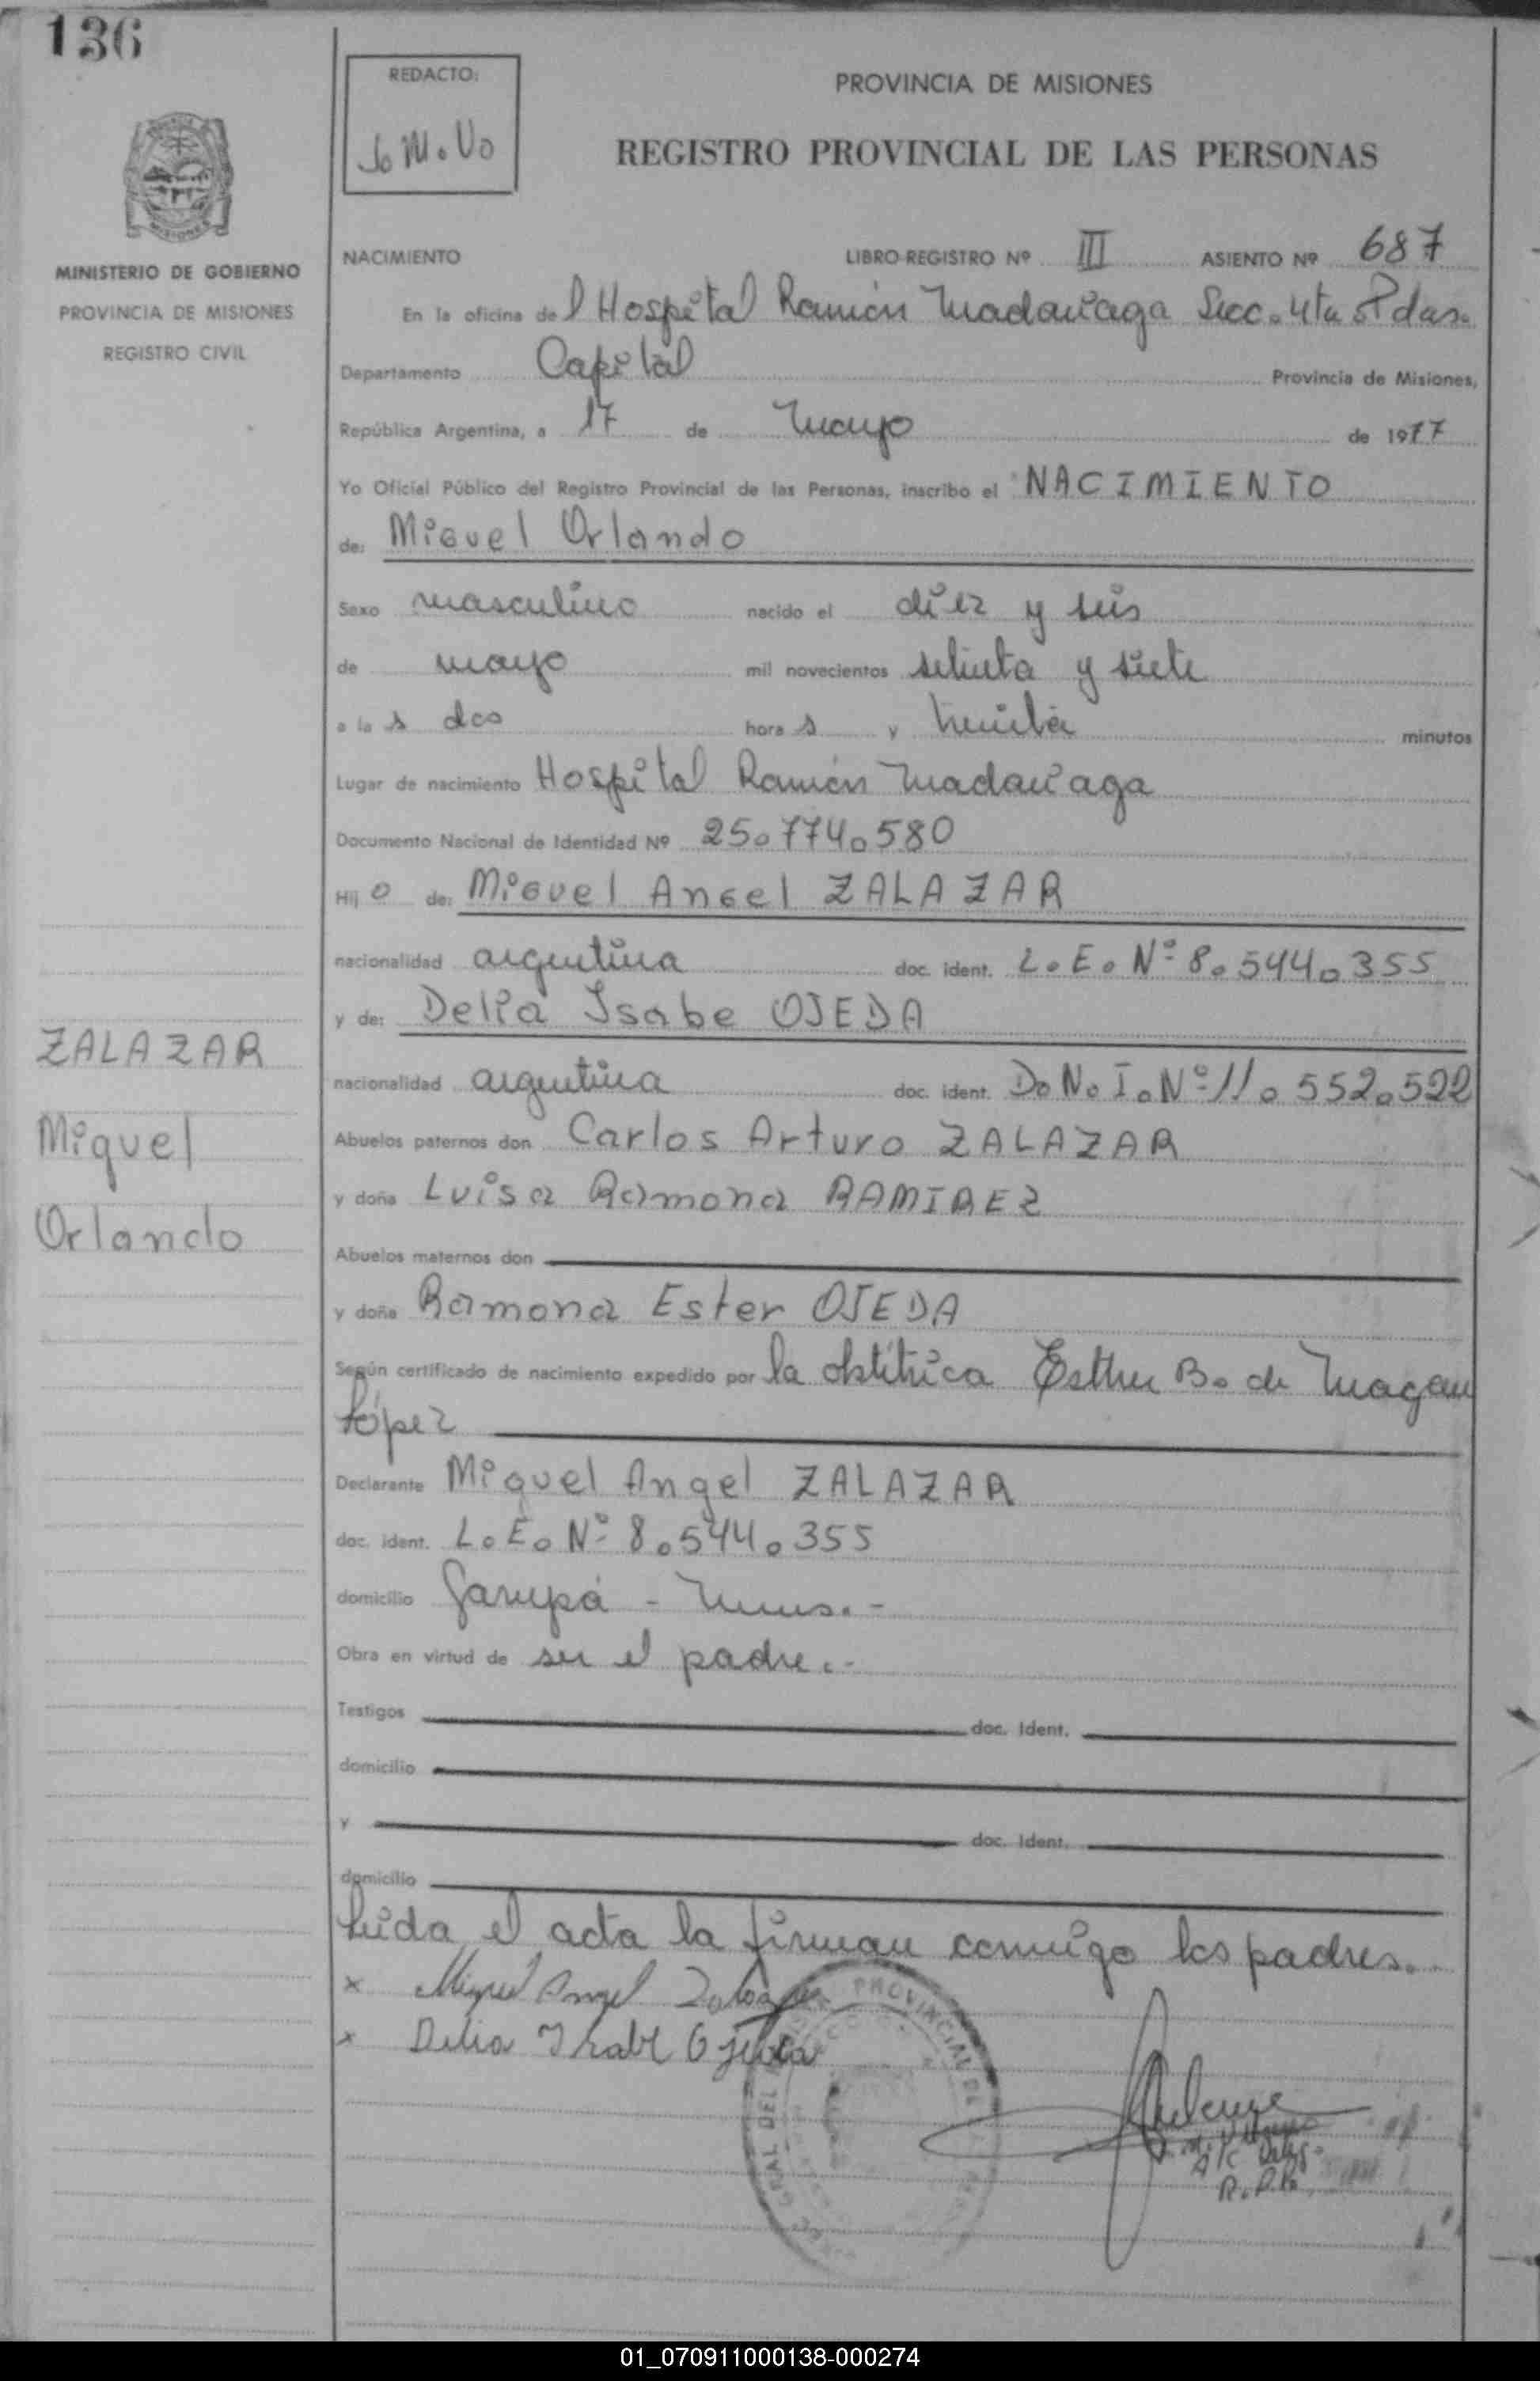 136
REDACTO:
Jo M. Vo
PROVINCIA DE MISIONES
REGISTRO PROVINCIAL DE LAS PERSONAS
MINISTERIO DE GOBIERNO
PROVINCIA DE MISIONES
REGISTRO CIVIL
NACIMIENTO LIBRO REGISTRO Nº III ASIENTO Nº 687
En la oficina del Hospital Ramón Madariaga Secc. 4ta Pdas.
Departamento Capital Provincia de Misiones,
República Argentina, a 17 de mayo de 1977
Yo Oficial Público del Registro Provincial de las Personas, inscribo el NACIMIENTO
de: Miguel Orlando
Sexo masculino nacido el diez y seis
de mayo mil novecientos setenta y siete
a las dos horas y treinta minutos
Lugar de nacimiento Hospital Ramón Madariaga
Documento Nacional de Identidad Nº 25.774.580
Hijo de: Miguel Angel ZALAZAR
nacionalidad argentina doc. ident. L.E. Nº 8.544.355
y de: Delia Isabe OJEDA
nacionalidad argentina doc. ident. D.N.I. Nº 11.552.522
Abuelos paternos don Carlos Arturo ZALAZAR
y doña Luisa Ramona RAMIREZ
Abuelos maternos don
y doña Ramona Ester OJEDA
Según certificado de nacimiento expedido por la obstétrica Esther B. de Magan
López
Declarante Miguel Angel ZALAZAR
doc. ident. L.E. Nº 8.544.355
domicilio Garupá - Mnes. -
Obra en virtud de ser el padre.-
Testigos doc. Ident.
domicilio
y doc. Ident.
domicilio
Leída el acta la firman conmigo los padres.
x Miguel Angel Zalazar
x Delia Isabl Ojeda
ZALAZAR
Miguel
Orlando
PROVINCIAL DE
GRAL DEL
A/C Deleg.
R.P.P.
01_070911000138-000274